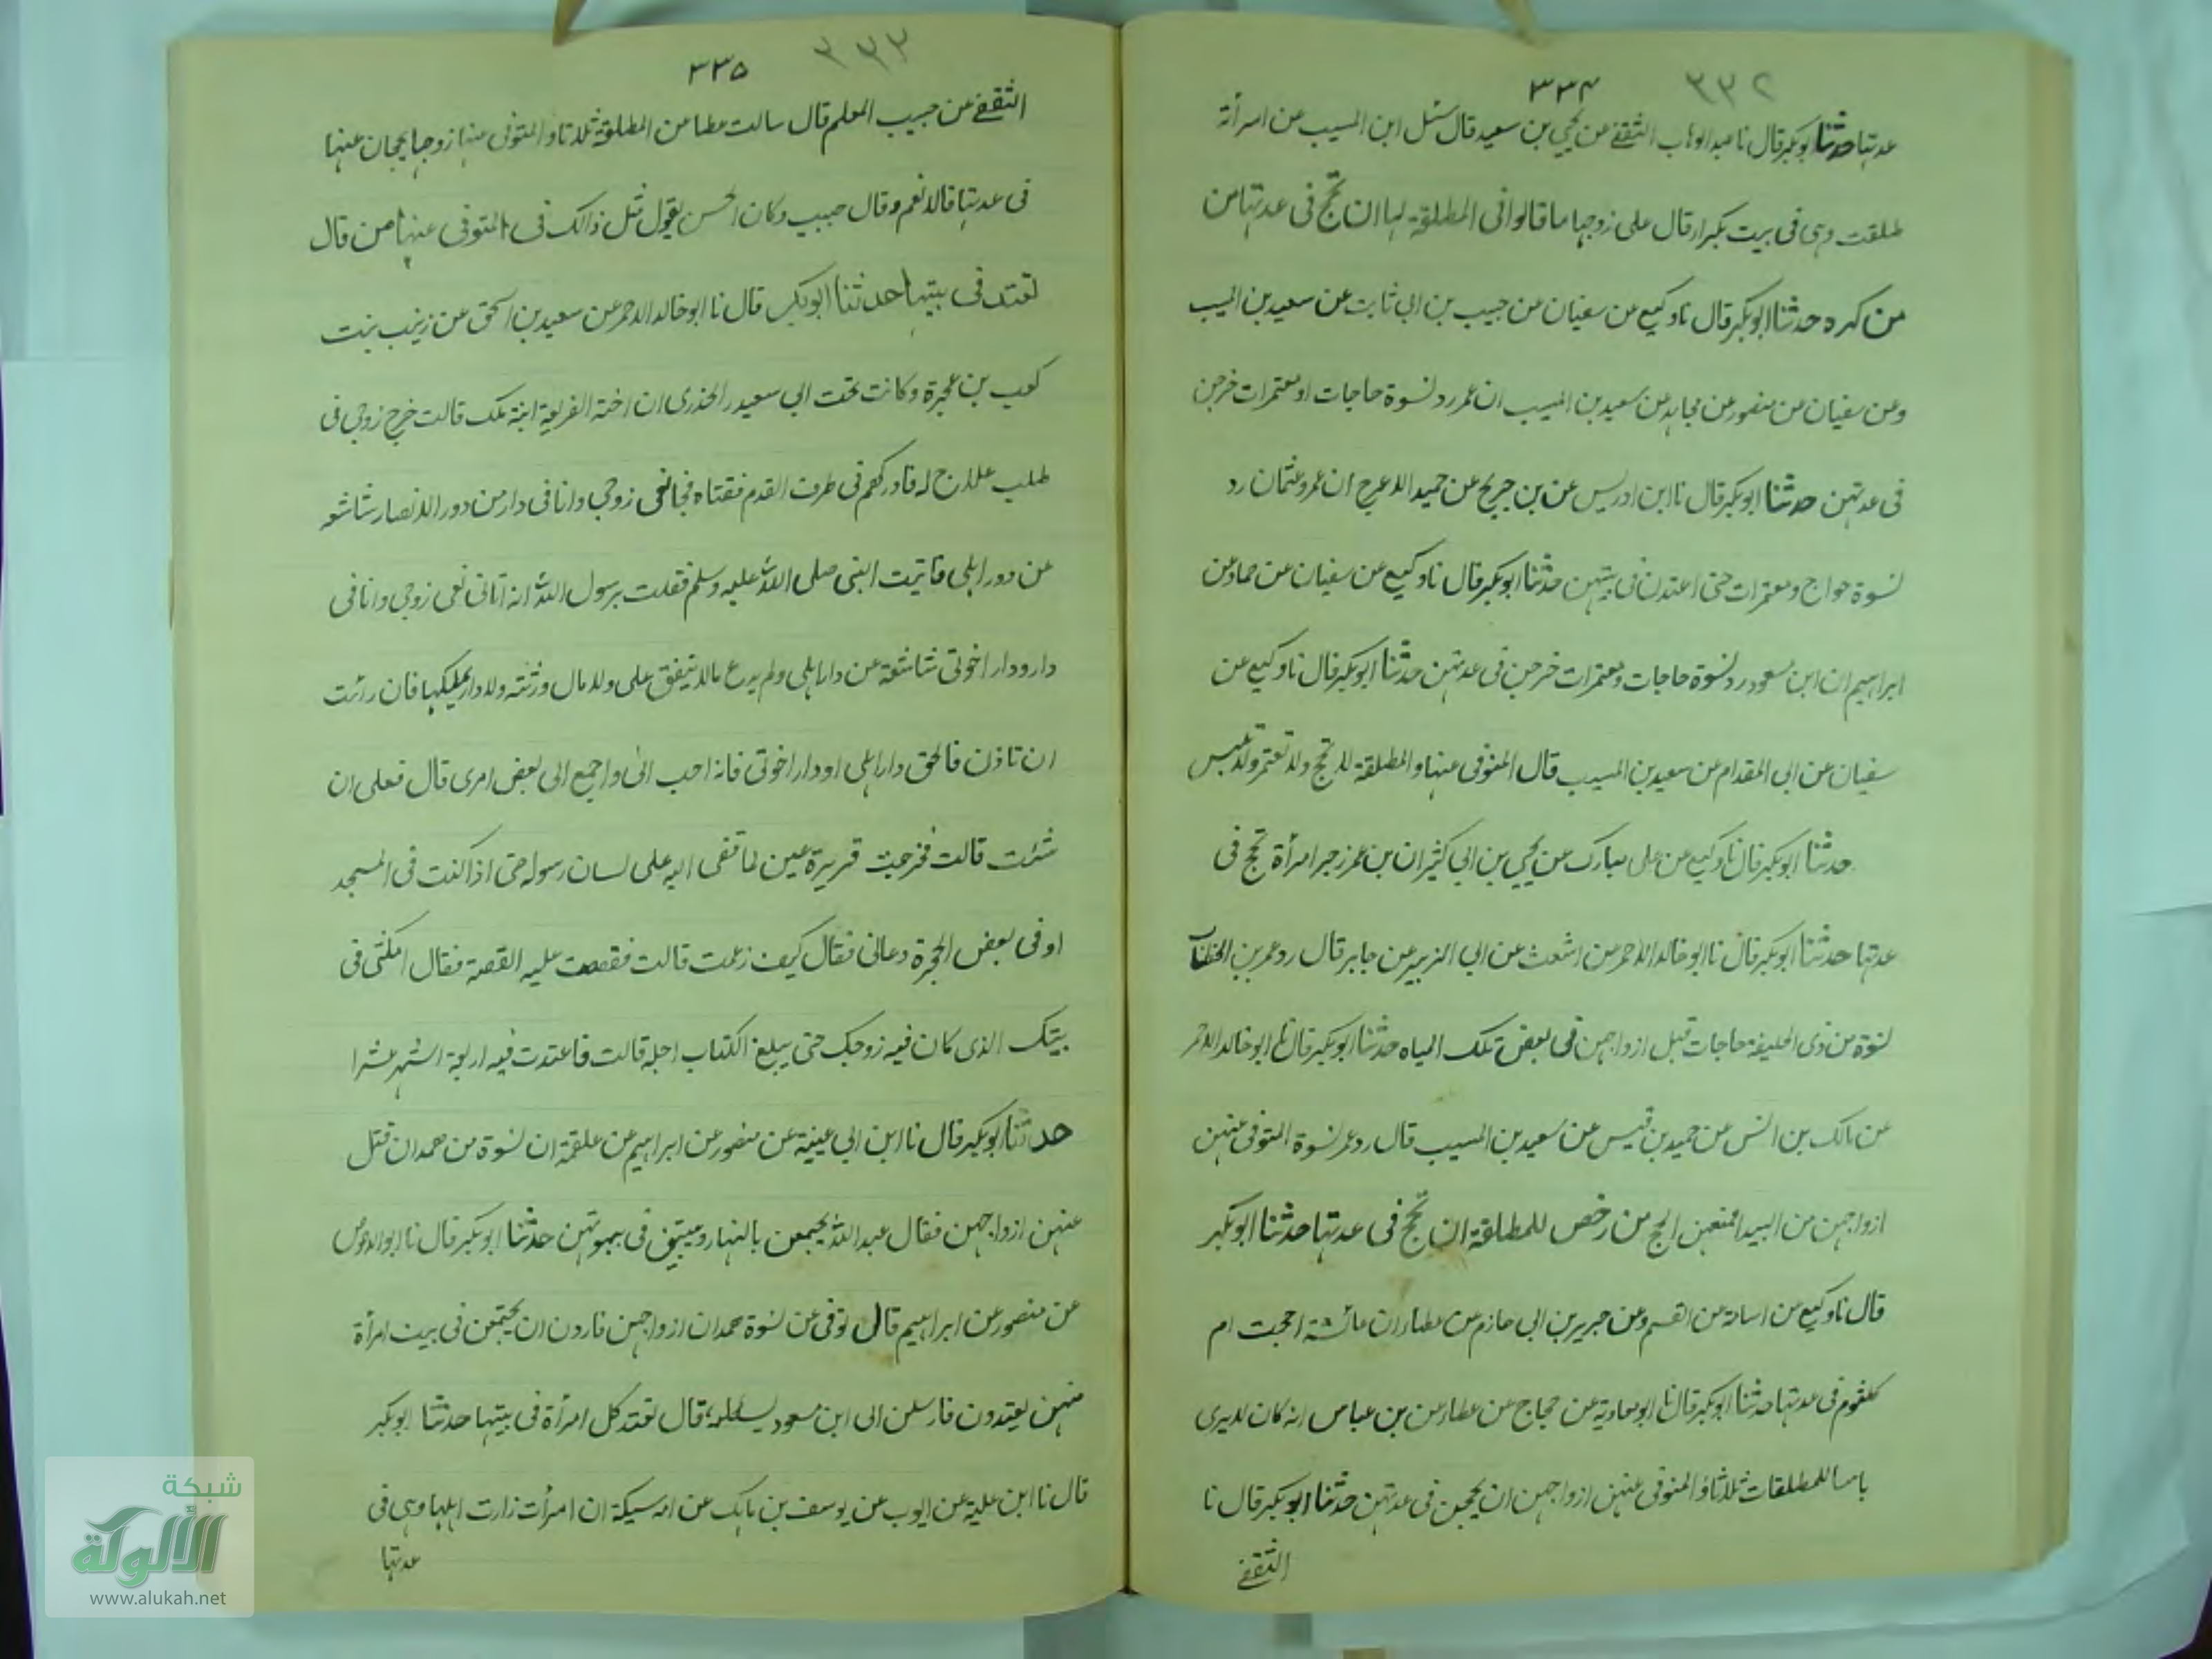 ٣٣٤ ٣٣٢
عدتها حدثنا ابوبكر قال نا عبد الوهاب الثقفي عن يحيى بن سعيد قال سئل ابن المسيب عن امرأة
طلقت وهى فى بيت بكرا قال على زوجها ما قالوا فى المطلقة لها ان تحج فى عدتها من
من كره حدثنا ابوبكر قال نا وكيع عن سفيان عن حبيب بن ابي ثابت عن سعيد بن المسيب
وعن سفيان عن منصور عن مجاهد عن سعيد بن المسيب ان عمر رد نسوة حاجات او معتمرات خرجن
فى عدتهن حدثنا ابوبكر قال نا ابن ادريس عن بن جريج عن حميد الاعرج ان عمر وعثمان رد
نسوة حواج ومعتمرات حتى اعتدن فى بيتهن حدثنا ابوبكر قال نا وكيع عن سفيان عن حماد عن
ابراهيم ان ابن مسعود رد نسوة حاجات ومعتمرات خرجن فى عدتهن حدثنا ابوبكر قال نا وكيع عن
سفيان عن ابى المقدام عن سعيد بن المسيب قال المتوفى عنها والمطلقة لا تحج ولا تعتمر ولا تلبس
حدثنا ابوبكر قال نا وكيع عن على مبارك عن يحيى بن ابي كثير ان بن عمر زجر امرأة تحج فى
عدتها حدثنا ابوبكر قال نا ابو خالد الاحمر عن اشعث عن ابي الزبير عن جابر قال رد عمر بن الخطاب
نسوة من ذى الحليفة حاجات قبل ازواجهن فى بعض تلك المياه حدثنا ابوبكر قال نا ابو خالد الاحمر
عن مالك بن انس عن حميد بن قيس عن سعيد بن المسيب قال رد عمر نسوة المتوفى عنهن
ازواجهن من البيدا يمنعهن الحج من رخص للمطلقة ان تحج فى عدتها حدثنا ابوبكر
قال نا وكيع عن اسامة عن القسم وعن جرير بن ابى حازم عن عطاء ان عائشة احجت ام
كلثوم فى عدتها حدثنا ابوبكر قال نا ابو معاوية عن حجاج عن عطاء عن بن عباس انه كان لا يرى
باسا للمطلقات ثلاثا والمتوفى عنهن ازواجهن ان يحججن فى عدتهن حدثنا ابوبكر قال نا
الثقفي
٣٣٥ ٣٣٣
الثقفي عن حبيب المعلم قال سالت عطا عن المطلقة ثلاثا والمتوفى عنها زوجها يحجان عنها
فى عدتها قالا نعم وقال حبيب وكان الحسن يقول مثل ذالك فى المتوفى عنها من قال
تعتد فى بيتها حدثنا ابوبكر قال نا ابو خالد الاحمر عن سعيد بن اسحق عن زينب بنت
كعب بن عجرة وكانت تحت ابي سعيد الخدرى ان اخته الفريعة ابنة ملك قالت خرج زوجى فى
طلب علاج له فادركهم فى طرف القدم فقتلوه فجا نعى زوجى وانا فى دار من دور الانصار شاسعة
عن دور اهلى فاتيت النبى صلى الله عليه وسلم فقلت يرسول الله انه اتانى نعى زوجى وانا فى
دار ودار اخوتى شاسعة عن دار اهلى ولم يدع مالا ينفق على ولا مال ورثته ولا دار يملكها فان رأيت
ان تاذن فالحق دار اهلى او دار اخوتى فانه احب الى واجمع الى بعض امرى قال فعلى ان
شئت قالت فخرجت قريرة عين لما قضى الله على لسان رسوله حتى اذا كنت فى المسجد
او فى بعض الحجرة دعانى فقال كيف زعمت قالت فقصصت عليه القصة فقال امكثى فى
بيتك الذى كان فيه زوجك حتى يبلغ الكتاب اجله قالت فاعتدت فيه اربعة اشهر عشرا
حدثنا ابوبكر قال نا ابن ابى عيينة عن منصور عن ابراهيم عن علقمة ان نسوة من همدان قتل
عنهن ازواجهن فقال عبد الله يجتمعن بالنهار ويبتن فى بيوتهن حدثنا ابوبكر قال نا ابو الاحوص
عن منصور عن ابراهيم قال توفى عن نسوة همدان ازواجهن فاردن ان يجتمعن فى بيت امرأة
منهن يعتدون فارسلن الى ابن مسعود يسئلنه قال تعتد كل امرأة فى بيتها حدثنا ابوبكر
قال نا ابن علية عن ايوب عن يوسف بن ماهك عن امه مسيكة ان امرأت زارت اهلها وهى فى
عدتها
شبكة
الألوكة
www.alukah.net